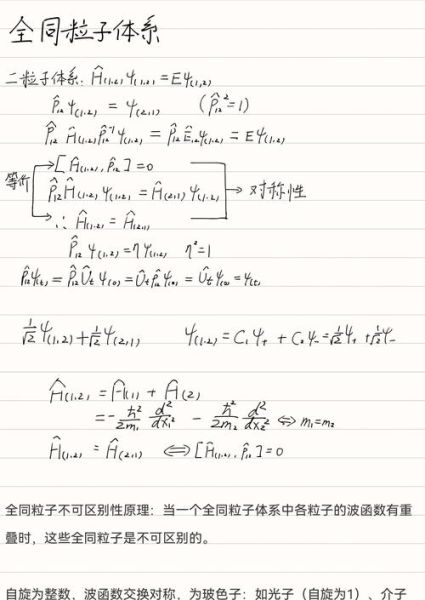 全同粒子体系
二粒子体系: Ĥ(1,2) ψ(1,2) = Eψ(1,2)
P̂₁₂ ψ(1,2) = ψ(2,1) (P̂₁₂² = 1)
P̂₁₂ Ĥ(1,2) P̂₁₂⁻¹ ψ(1,2) = P̂₁₂ Ê₁₂ ψ(1,2) = Eψ(1,2)
等价 → [Ĥ(1,2), P̂₁₂] = 0
P̂₁₂ Ĥ(1,2) ψ(1,2) = Ĥ(2,1) ψ(1,2) → 对称性
∴ Ĥ(1,2) = Ĥ(2,1)
P̂₁₂ ψ(1,2) = ηψ(1,2) η² = 1
P̂₁₂ψ(t) = P̂₁₂Û_t ψ(0) = Û_t P̂₁₂ψ(0) = Û_t ψ(0) = ψ(t)
1/√2 ψ(1,2) + 1/√2 ψ(2,1) ψ(1,2) = C₁ψ₊ + C₂ψ₋ = 1/√2 ψ₊ + 1/√2 ψ₋
Ĥ(1,2) = Ĥ(1) + Ĥ(2)
= -ħ²/2m₁ d²/dx₁² - ħ²/2m₂ d²/dx₂² ⇔ m₁=m₂
Ĥ(1,2) = Ĥ(2,1) ⇔ [Ĥ(1,2), P̂₁₂] = 0
全同粒子不可区别性原理：当一个全同粒子体系中各粒子的波函数有重
叠时，这些全同粒子是不可区别的。
自旋为整数，波函数交换对称，为玻色子：如光子（自旋为1）、介子